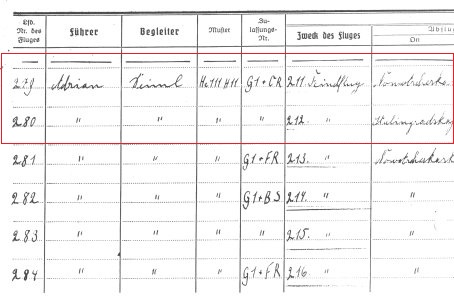 Lfd. Nr. des Fluges Führer Begleiter Muster Zu-lassungs-Nr. Zweck des Fluges Abflug Ort
279 Adrian He111 H11 G1+CR 211. Feindflug
280 " " 212. "
281 " " G1+FR 213. "
282 " " G1+BS 214. " "
283 " " " 215. " "
284 " " G1+FR 216. " "